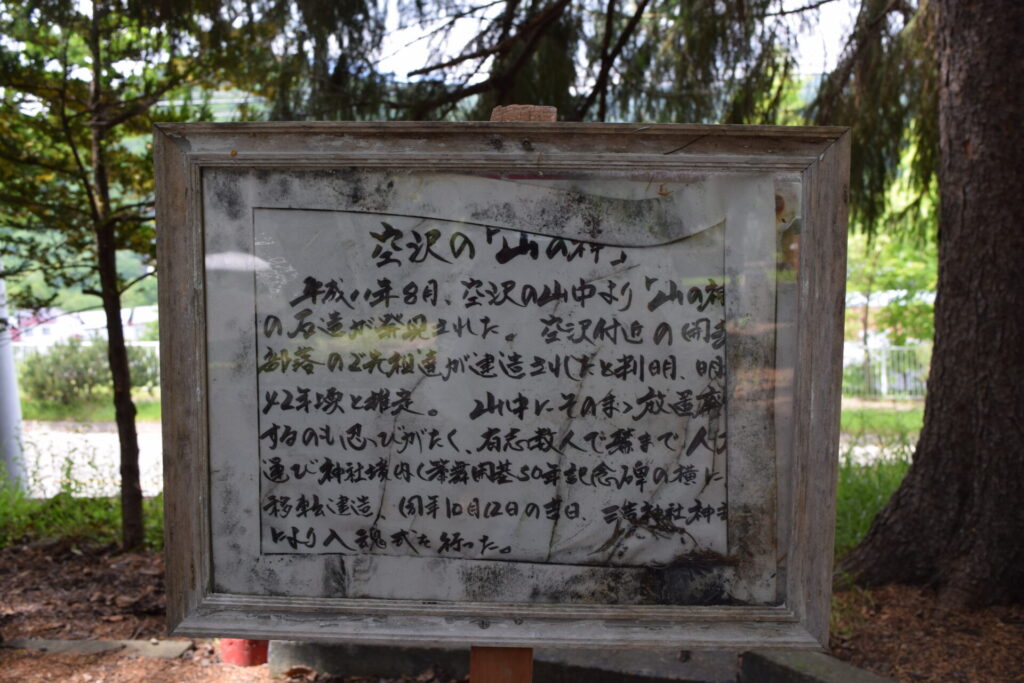 空沢の「山の神」
平成11年8月、空沢の山中より「山の神
の石造が発見された。 空沢付近の開
部落のご先祖達が建造されたと判明、明
42年頃と推定。 山中にそのまゝ放置
するのも忍びがたく、有志数人で麓まで人
運び神社境内(峯舞開基50年記念碑の横に
移転建造、同年10月12日の吉日、三吉神社神
により入魂式を行った。